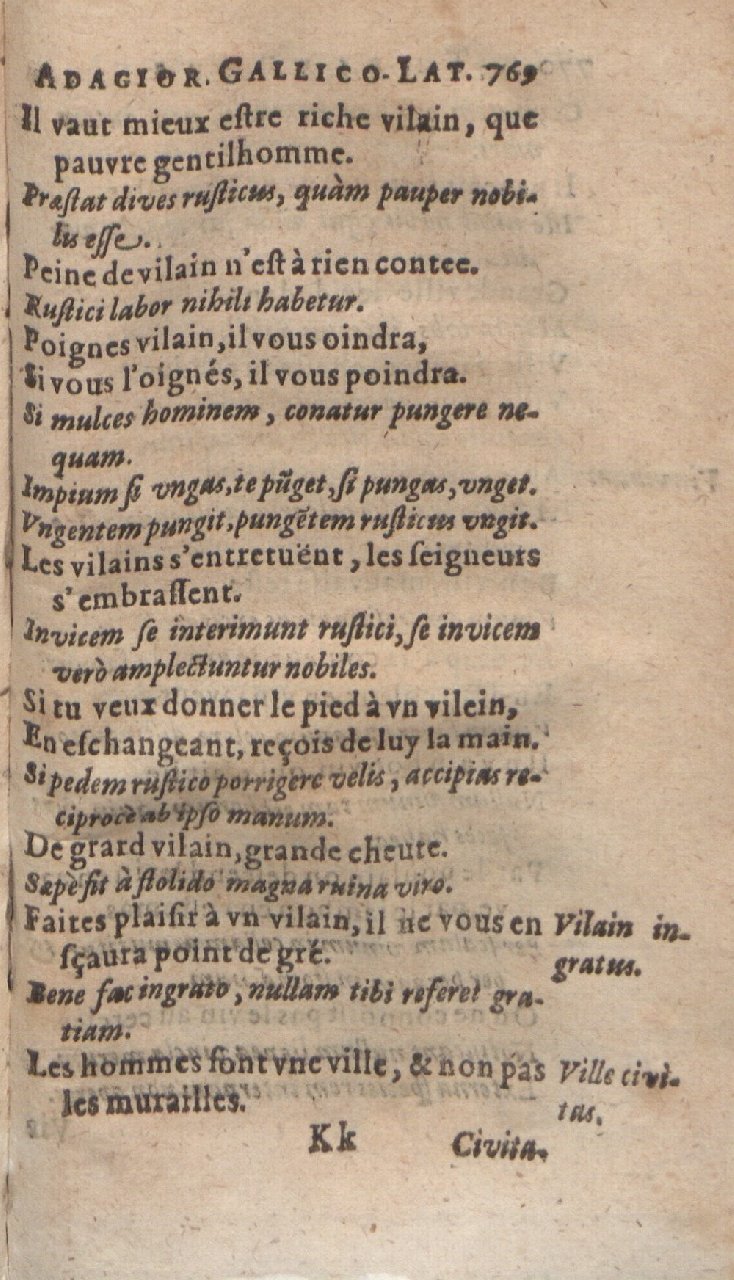 ADAGIOR. GALLICO-LAT. 769
Il vaut mieux eſtre riche vilain, que
pauvre gentilhomme.
Præſtat dives ruſticus, quàm pauper nobi-
lis eſſe.
Peine de vilain n'eſt à rien contee.
Ruſtici labor nihili habetur.
Poignes vilain, il vous oindra,
Si vous l'oignés, il vous poindra.
Si mulces hominem, conatur pungere ne-
quam.
Impium ſi vngas, te pũget, ſi pungas, vnget.
Vngentem pungit, pungẽtem ruſticus vngit.
Les vilains s'entretuënt, les ſeigneurs
s'embraſſent.
Invicem ſe interimunt ruſtici, ſe invicem
verò amplectuntur nobiles.
Si tu veux donner le pied à vn vilein,
En eſchangeant, reçois de luy la main.
Si pedem ruſtico porrigere velis, accipias re-
ciprocè ab ipſo manum.
De grard vilain, grande cheute.
Sæpè fit à ſtolido magna ruina viro.
Faites plaiſir à vn vilain, il ne vous en Vilain in-
ſçaura point de gré. gratus.
Bene fac ingrato, nullam tibi referet gra-
tiam.
Les hommes ſont vne ville, & non pas Ville civi-
les murailles. tas.
Kk Civita-